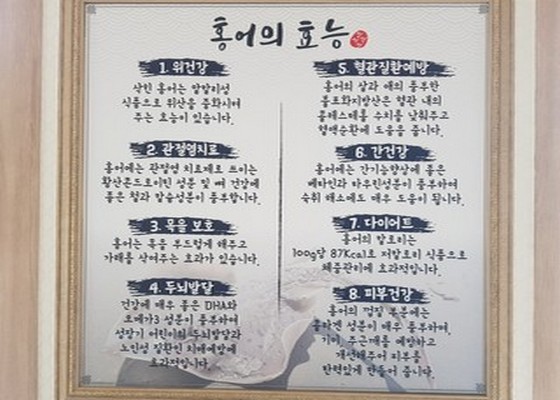 홍어의 효능
1. 위건강
삭힌 홍어는 알칼리성
식품으로 위산을 중화시켜
주는 효능이 있습니다.
2. 관절염치료
홍어에는 관절염 치료제로 쓰이는
황산콘드로이틴 성분 및 뼈 건강에
좋은 철과 칼슘성분이 풍부합니다.
3. 목을 보호
홍어는 목을 부드럽게 해주고
가래를 삭여주는 효과가 있습니다.
4. 두뇌발달
건강에 매우 좋은 DHA와
오메가3 성분이 풍부하여
성장기 어린이의 두뇌발달과
노인성 질환인 치매예방에
효과적입니다.
5. 혈관질환예방
홍어의 살과 애의 풍부한
불포화지방산은 혈관 내의
콜레스테롤 수치를 낮춰주고
혈액순환에 도움을 줍니다.
6. 간건강
홍어에는 간기능향상에 좋은
베타인과 타우린성분이 풍부하여
숙취 해소에도 매우 도움이 됩니다.
7. 다이어트
홍어의 칼로리는
100g당 87Kcal로 저칼로리 식품으로
체중관리에 효과적입니다.
8. 피부건강
홍어의 껍질 부분에는
콜라겐 성분이 매우 풍부하며,
기미, 주근깨를 예방하고
개선해주어 피부를
탄력있게 만들어 줍니다.